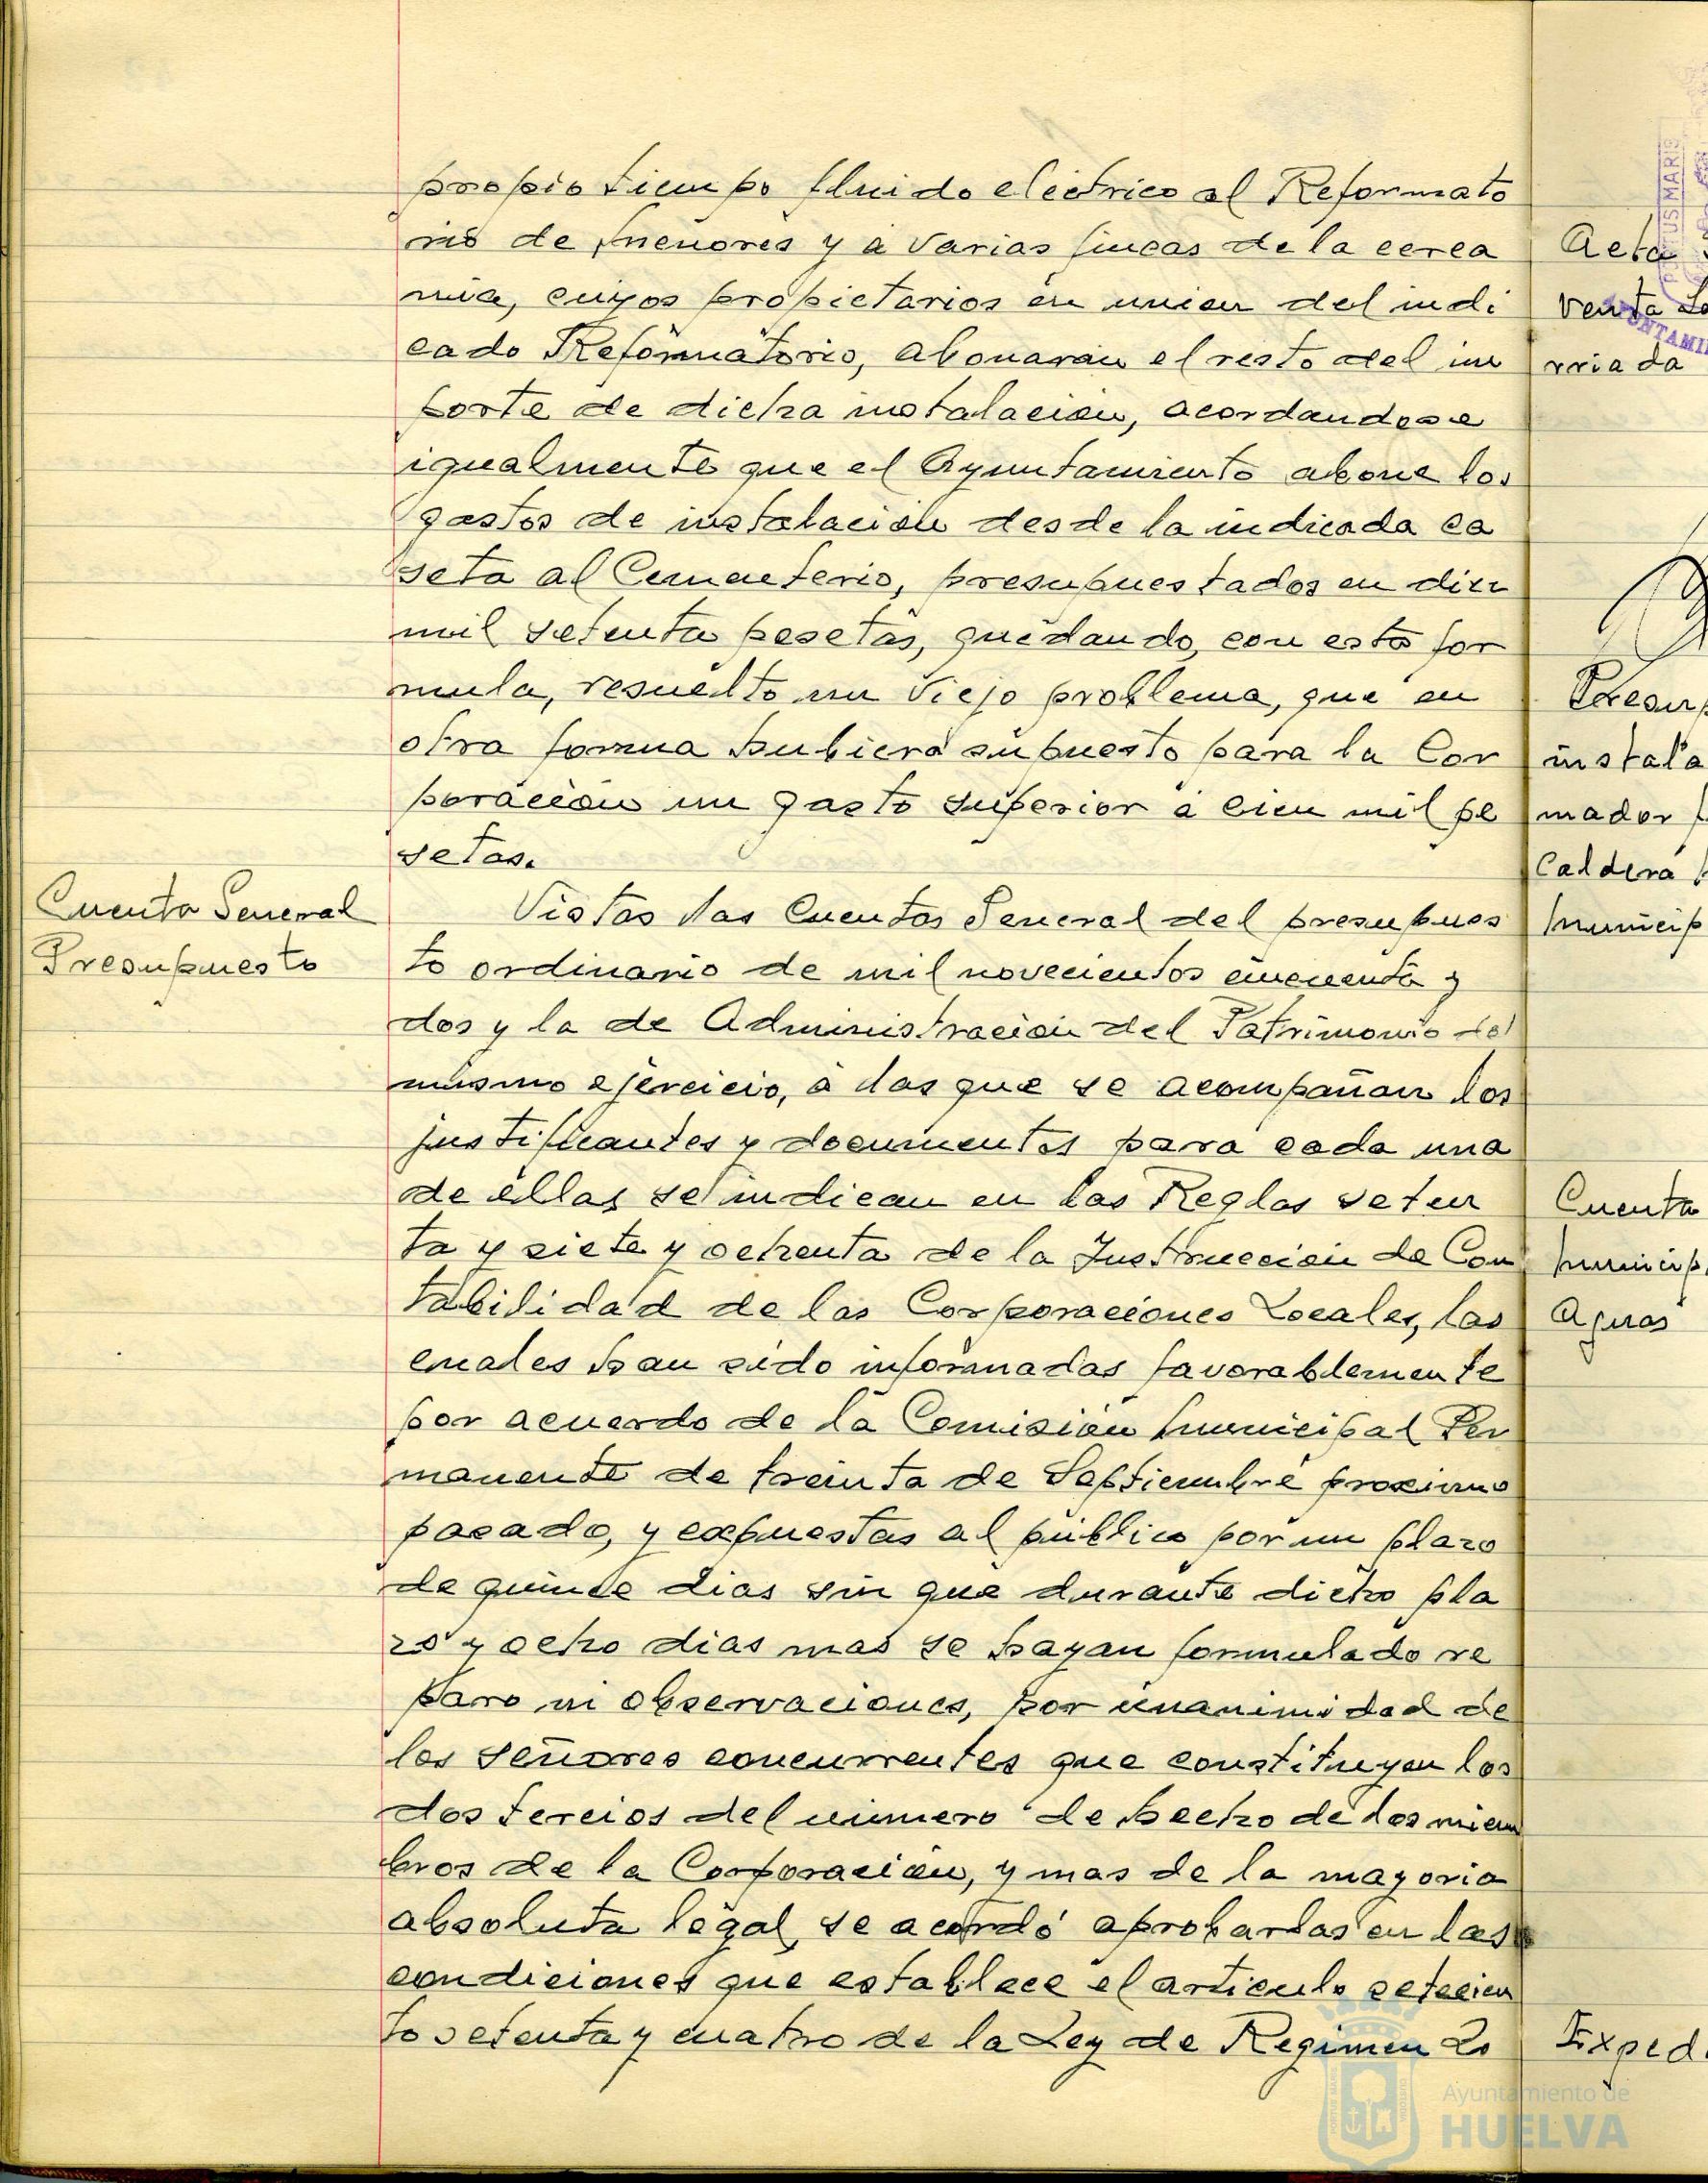 propio tiempo fluido eléctrico al Reformato
rio de Menores y a varias fincas de la cerca
nia, cuyos propietarios en union del indi
cado Reformatorio, abonarán el resto del im
porte de dicha instalación, acordandose
igualmente que el Ayuntamiento abone los
gastos de instalación desde la indicada ca
seta al Cementerio, presupuestados en diez
mil setenta pesetas, quedando, con esta for
mula, resuelto un viejo problema, que en
otra forma hubiera supuesto para la Cor
poración un gasto superior a cien mil pe
setas.
Cuenta General
Presupuesto
Vistas las Cuentas General del presupues
to ordinario de mil novecientos cincuenta y
dos y la de Administración del Patrimonio del
mismo ejercicio, a las que se acompañan los
justificantes y documentos para cada una
de ellas se indican en las Reglas seten
ta y siete y ochenta de la Instrucción de Con
tabilidad de las Corporaciones Locales, las
cuales han sido informadas favorablemente
por acuerdo de la Comisión Municipal Per
manente de treinta de Septiembre proximo
pasado, y expuestas al público por un plazo
de quince dias sin que durante dicho pla
zo y ocho dias mas se hayan formulado re
paro ni observaciones, por unanimidad de
los señores concurrentes que constituyen los
dos tercios del número de hecho de los miem
bros de la Corporación, y mas de la mayoria
absoluta legal, se acordó aprobarlas en las
condiciones que establece el articulo setecien
to setenta y cuatro de la Ley de Regimen Lo
Acta
Venta
rriada
instala
mador
Caldera
Municip
Cuenta
Municip
Aguas
Exped
Ayuntamiento de
HUELVA